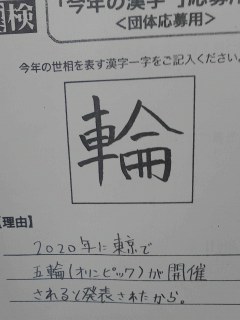 漢検 「今年の漢字」応募用
<団体応募用>
今年の世相を表す漢字一字をご記入ください。
輪
【理由】
2020年に東京で
五輪(オリンピック)が開催
されると発表されたから。